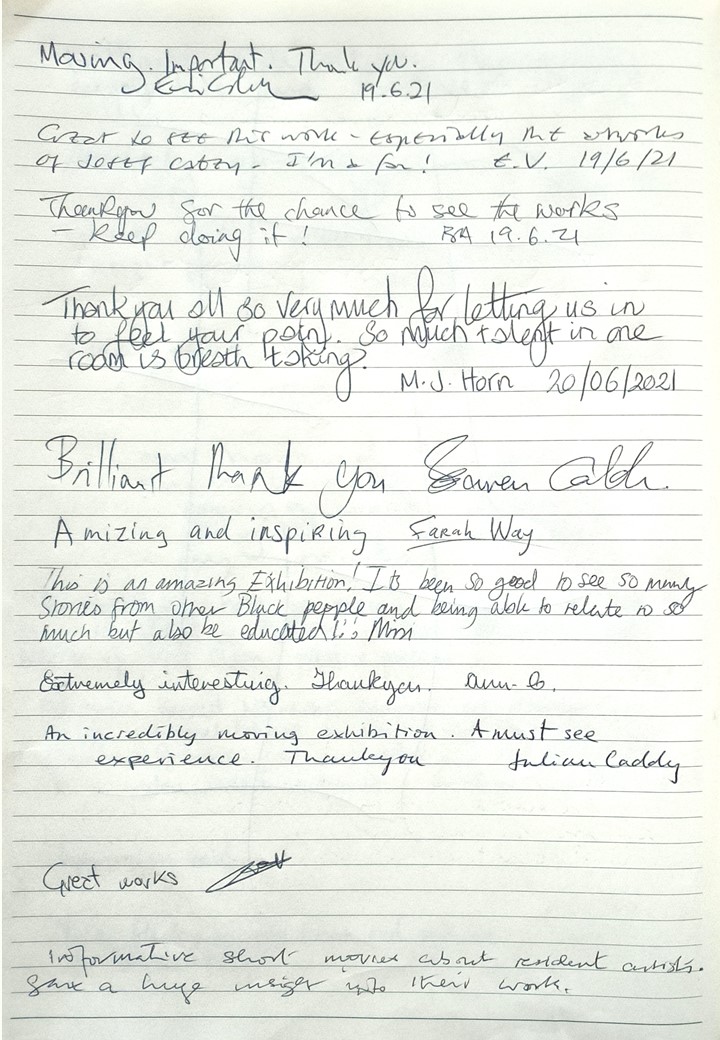 Moving. Important. Thank you.
19.6.21
Great to see this work - especially the artworks
of Josef Cabey - I'm a fan! E.V. 19/6/21
Thankyou for the chance to see the works
- keep doing it! BA 19.6.21
Thank you all so very much for letting us in
to feel your point. So much talent in one
room is breath taking?
M.J. Horn 20/06/2021
Brilliant Thank you
Amizing and inspiring Sarah Way
This is an amazing Exhibition! Its been so good to see so many
Stories from other Black people and being able to relate to so
much but also be educated!!
Extremely interesting. Thankyou. Ann-B.
An incredibly moving exhibition. A must see
experience. Thankyou Julian Caddy
Great works
Informative short movies about resident artists.
Gave a huge insight into their work.